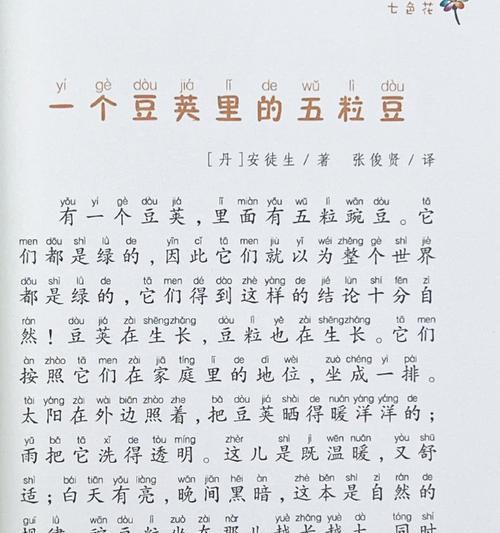 七色花
yí gè dòu jiá lǐ de wǔ lì dòu
一个豆荚里的五粒豆
[丹]安徒生/著 张俊贤/译
yǒu yí gè dòu jiá lǐ miàn yǒu wǔ lì wān dòu tā
有一个豆荚，里面有五粒豌豆。它
men dōu shì lǜ de yīn cǐ tā men jiù yǐ wéi zhěng gè shì jiè
们都是绿的，因此它们就以为整个世界
dōu shì lǜ de tā men dé dào zhè yàng de jié lùn shí fēn zì
都是绿的，它们得到这样的结论十分自
rán dòu jiá zài shēngzhǎng dòu lì yě zài shēngzhǎng tā men
然！豆荚在生长，豆粒也在生长。它们
àn zhào tā men zài jiā tíng lǐ de dì wèi zuò chéng yì pái
按照它们在家庭里的地位，坐成一排。
tài yáng zài wài biān zhào zhe bǎ dòu jiá shài de nuǎn yáng yáng de
太阳在外边照着，把豆荚晒得暖洋洋的；
yǔ bǎ tā xǐ de tòu míng zhèr shì jì wēn nuǎn yòu shū
雨把它洗得透明。这儿是既温暖，又舒
shì bái tiān yǒu liàng wǎn jiān hēi àn zhè běn shì zì rán de
适；白天有亮，晚间黑暗，这本是自然的
guī lǜ wān dòu lì zuò zài nàr yuè zhǎng yuè dà tóng shí
规律。豌豆粒坐在那儿越长越大，同时